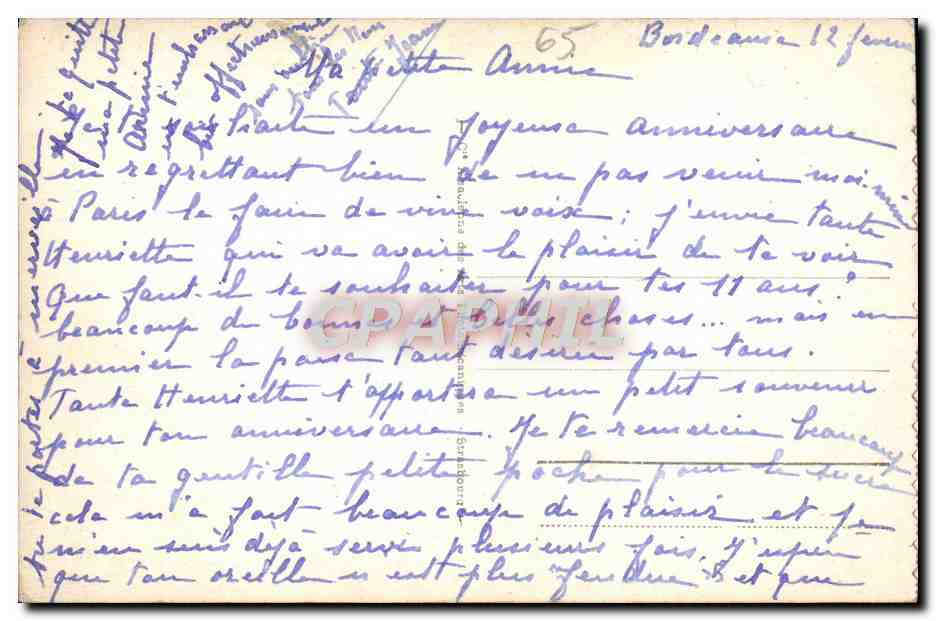 65
Bordeaux 12 février
Ma petite Annie
Je te souhaite un joyeux anniversaire
en regrettant bien de ne pas venir moi-même
à Paris le faire de vive voix ; j'envie tante
Henriette qui va avoir le plaisir de te voir
Que faut-il te souhaiter pour tes 11 ans ?
beaucoup de bonnes et belles choses... mais en
premier la paix tant désirée par tous.
Tante Henriette t'apportera un petit souvenir
pour ton anniversaire. Je te remercie beaucoup
de ta gentille petite poche pour le sucre
cela m'a fait beaucoup de plaisir et je
m'en suis déjà servie plusieurs fois. J'espère
que ton oreille n'est plus "fendue" et que
tu te portes à merveille.
Je te quitte
ma petite
Annie
en t'embrassant
bien affectueusement
Tante Jeanne
CPAPHIL
Strasbourg